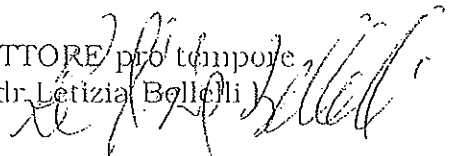 TTORE pro tempore
dr Letizia Bellelli )